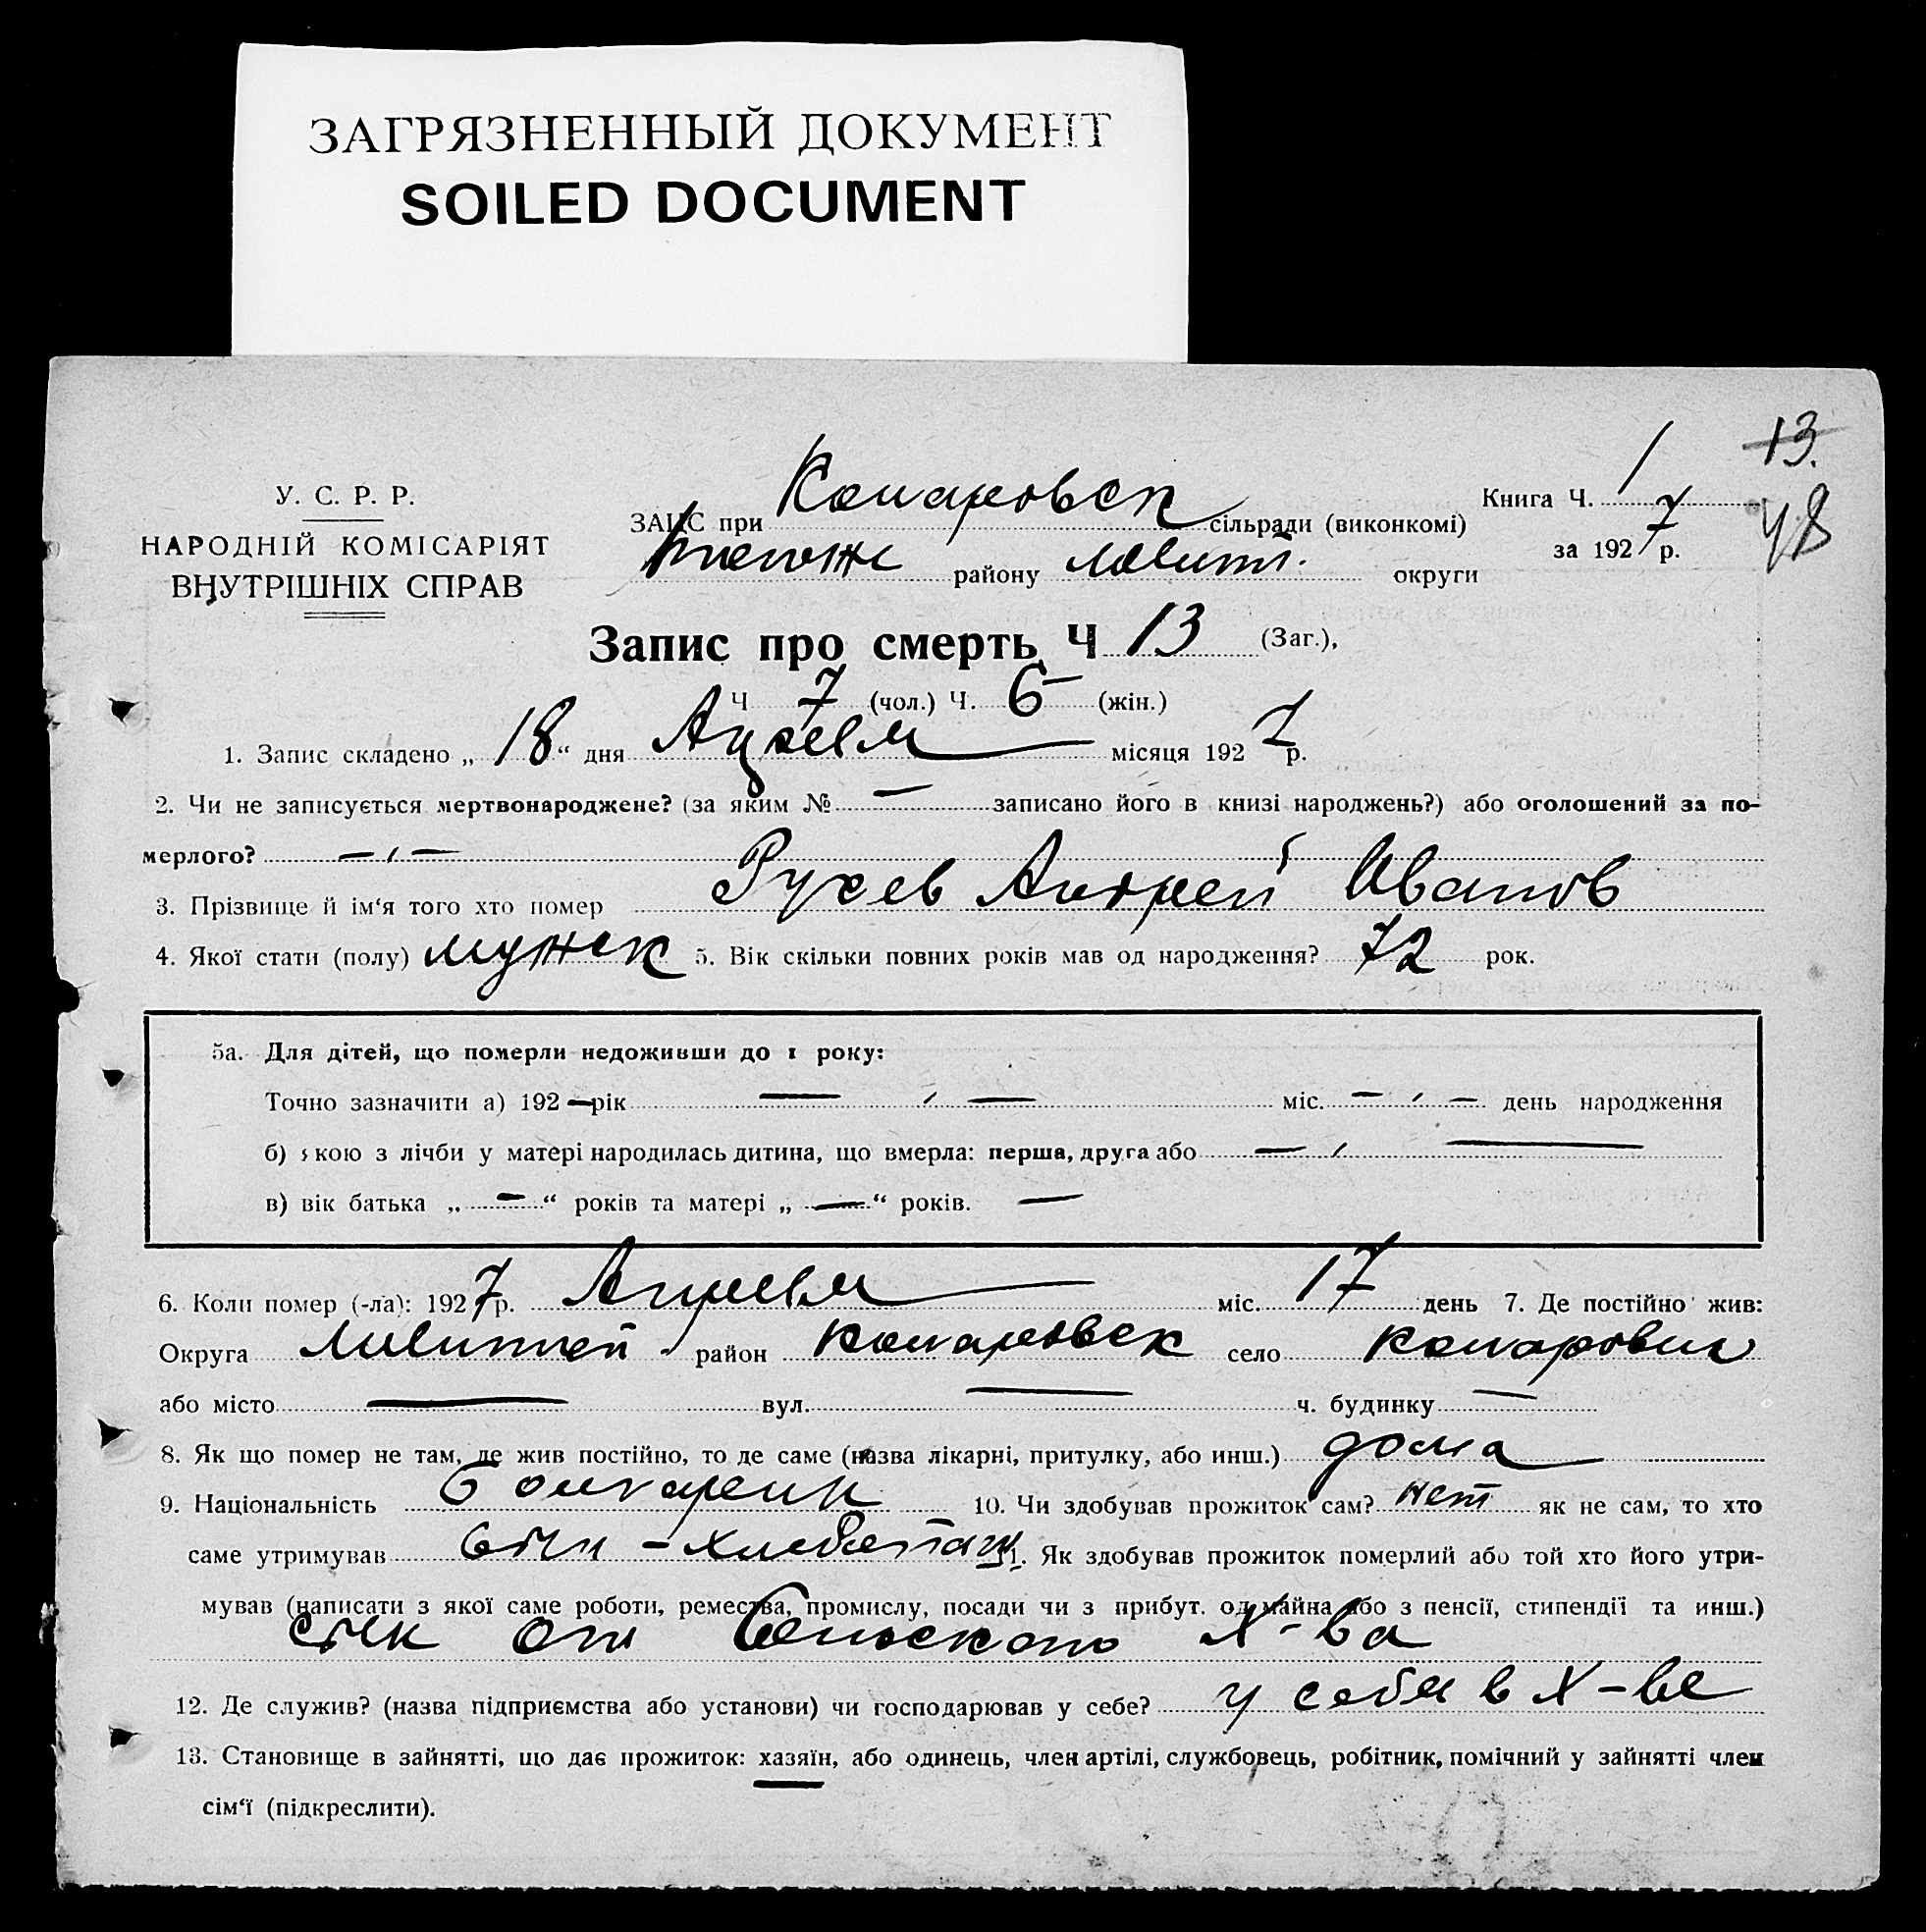 ЗАГРЯЗНЕННЫЙ ДОКУМЕНТ
SOILED DOCUMENT
13.
48
У. С. Р. Р.
НАРОДНІЙ КОМІСАРІЯТ
ВНУТРІШНІХ СПРАВ
Книга Ч. 1
за 1927 р.
ЗАЦС при Комаровск сільради (виконкомі)
району округи
Запис про смерть Ч 13 (Заг.),
Ч 7 (чол.) Ч. 6 — (жін.)
1. Запис складено „ 18 “ дня Апреля місяця 1927 р.
2. Чи не записується мертвонароджене? (за яким № — записано його в книзі народжень?) або оголошений за по-
мерлого? — „ —
3. Прізвище й ім‘я того хто помер Русев Андрей Иванов
4. Якої стати (полу) мужск 5. Вік скільки повних років мав од народження? 72 рок.
5а. Для дітей, що померли недоживши до 1 року:
Точно зазначити а) 192 — рік — „ — міс. — „ — день народження
б) якою з лічби у матері народилась дитина, що вмерла: перша, друга або — „ —
в) вік батька „ — “ років та матері „ — “ років. —
6. Коли помер (-ла): 1927 р. Апреля міс. 17 день 7. Де постійно жив:
Округа район Комаровск село
або місто — вул. — ч. будинку —
8. Як що помер не там, де жив постійно, то де саме (назва лікарні, притулку, або инш.) дома
9. Національність болгарин 10. Чи здобував прожиток сам? нет як не сам, то хто
саме утримував 11. Як здобував прожиток померлий або той хто його утри-
мував (написати з якої саме роботи, ремества, промислу, посади чи з прибут. од майна або з пенсії, стипендії та инш.)
от Сельского х-ва
12. Де служив? (назва підприємства або установи) чи господарював у себе? у себя в х-ве
13. Становище в зайнятті, що дає прожиток: хазяїн, або одинець, член артілі, службовець, робітник, помічний у зайнятті член
сім‘ї (підкреслити).